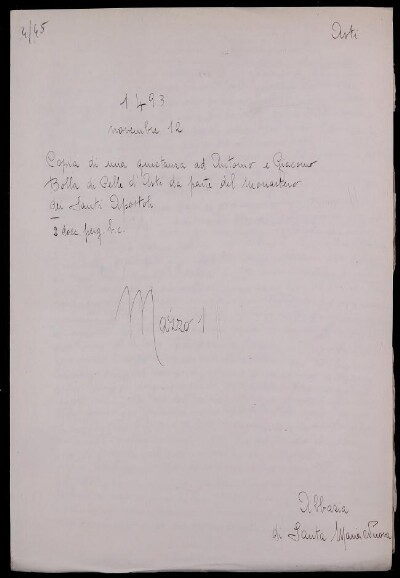 4/45
Asti
1493
novembre 12
Copia di una quietanza ad Antonio e Giacomo
Bolla di Celle di Asti da parte del Monastero
dei Santi Apostoli
2 docc. perg. b.c.
Mazzo 1
Abbazia
di Santa Maria Nuova